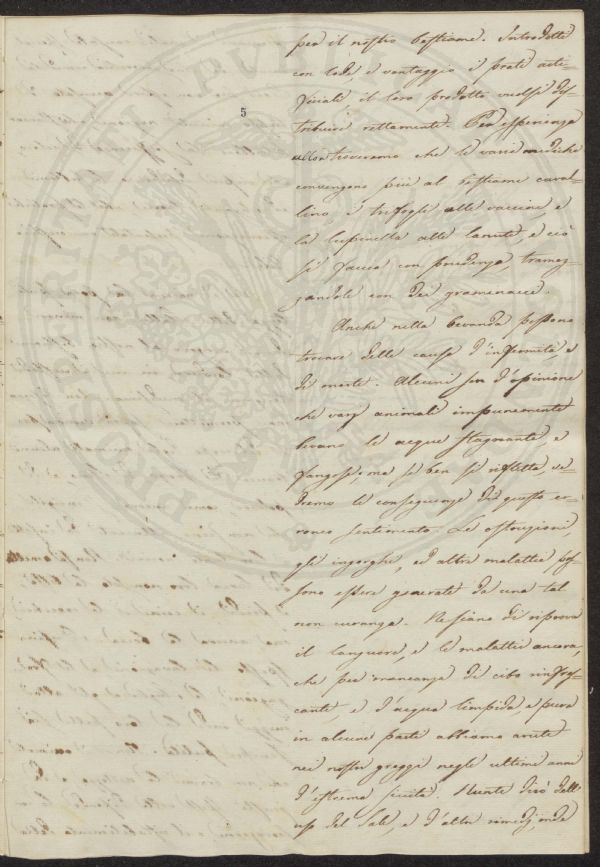 5
per il nostro bestiame. Introdotti
con lode, e vantaggio i prati arti-
ficiali il loro prodotto vuolsi dis-
tribuire rettamente. Per esperienza
allor troveremo che le varie mediche
convengono più al bestiame caval-
lino i trifogli alle vaccine, e
la lupinella alle lanute, e ciò
si faccia con prudenza, tramez-
zandole con dei graminacei.
Anche nella bevanda possono
trovare delle cause d'infermità e
di morte. Alcuni son d'opinione
che varj animali impunemente
bevano le acque stagnanti, e
fangose; ma se ben si rifletta, ve-
dremo le conseguenze di questo er-
roneo sentimento. Le ostruzioni,
gli ingorghi, ed altre malattie pos-
sono essere generate da una tal
non curanza. Ne siano di riprova
il languore, e le malattie ancora,
che per mancanza di cibo rinfres-
cante, e d'acqua limpida e pura
in alcune parti abbiamo avute
nei nostri greggi negli ultimi anni
d'estrema siccità. Niente dirò dell'
uso del Sale, e d'altri rimedj, onde
PROSPERITATI PUBLICAE